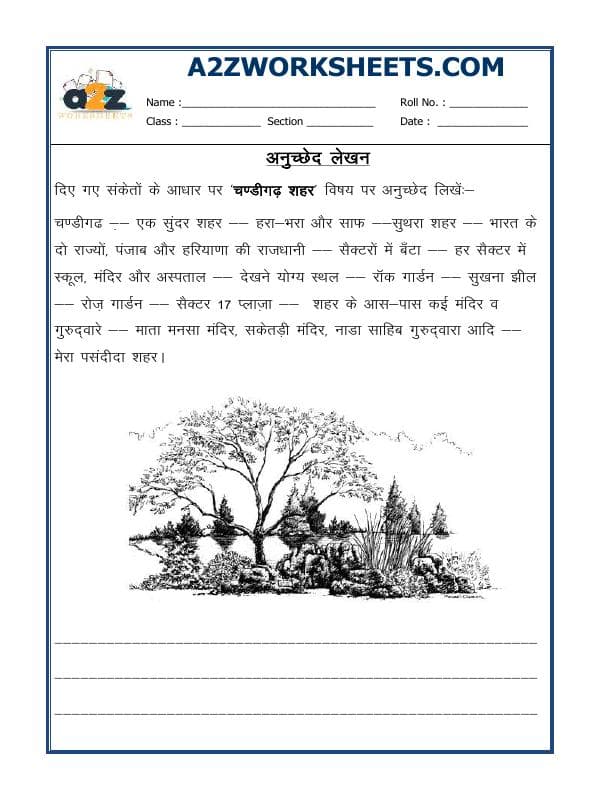 A2ZWORKSHEETS.COM
a2z
WORKSHEETS
Name :______________________________ Roll No. : ____________
Class : ____________ Section __________ Date : ______________
अनुच्छेद लेखन
दिए गए संकेतों के आधार पर 'चण्डीगढ़ शहर' विषय पर अनुच्छेद लिखें:–
चण्डीगढ –– एक सुंदर शहर –– हरा–भरा और साफ ––सुथरा शहर –– भारत के
दो राज्यों, पंजाब और हरियाणा की राजधानी –– सैक्टरों में बँटा –– हर सैक्टर में
स्कूल, मंदिर और अस्पताल –– देखने योग्य स्थल –– रॉक गार्डन –– सुखना झील
–– रोज़ गार्डन –– सैक्टर 17 प्लाज़ा –– शहर के आस–पास कई मंदिर व
गुरुद्वारे –– माता मनसा मंदिर, सकेतड़ी मंदिर, नाडा साहिब गुरुद्वारा आदि ––
मेरा पसंदीदा शहर।